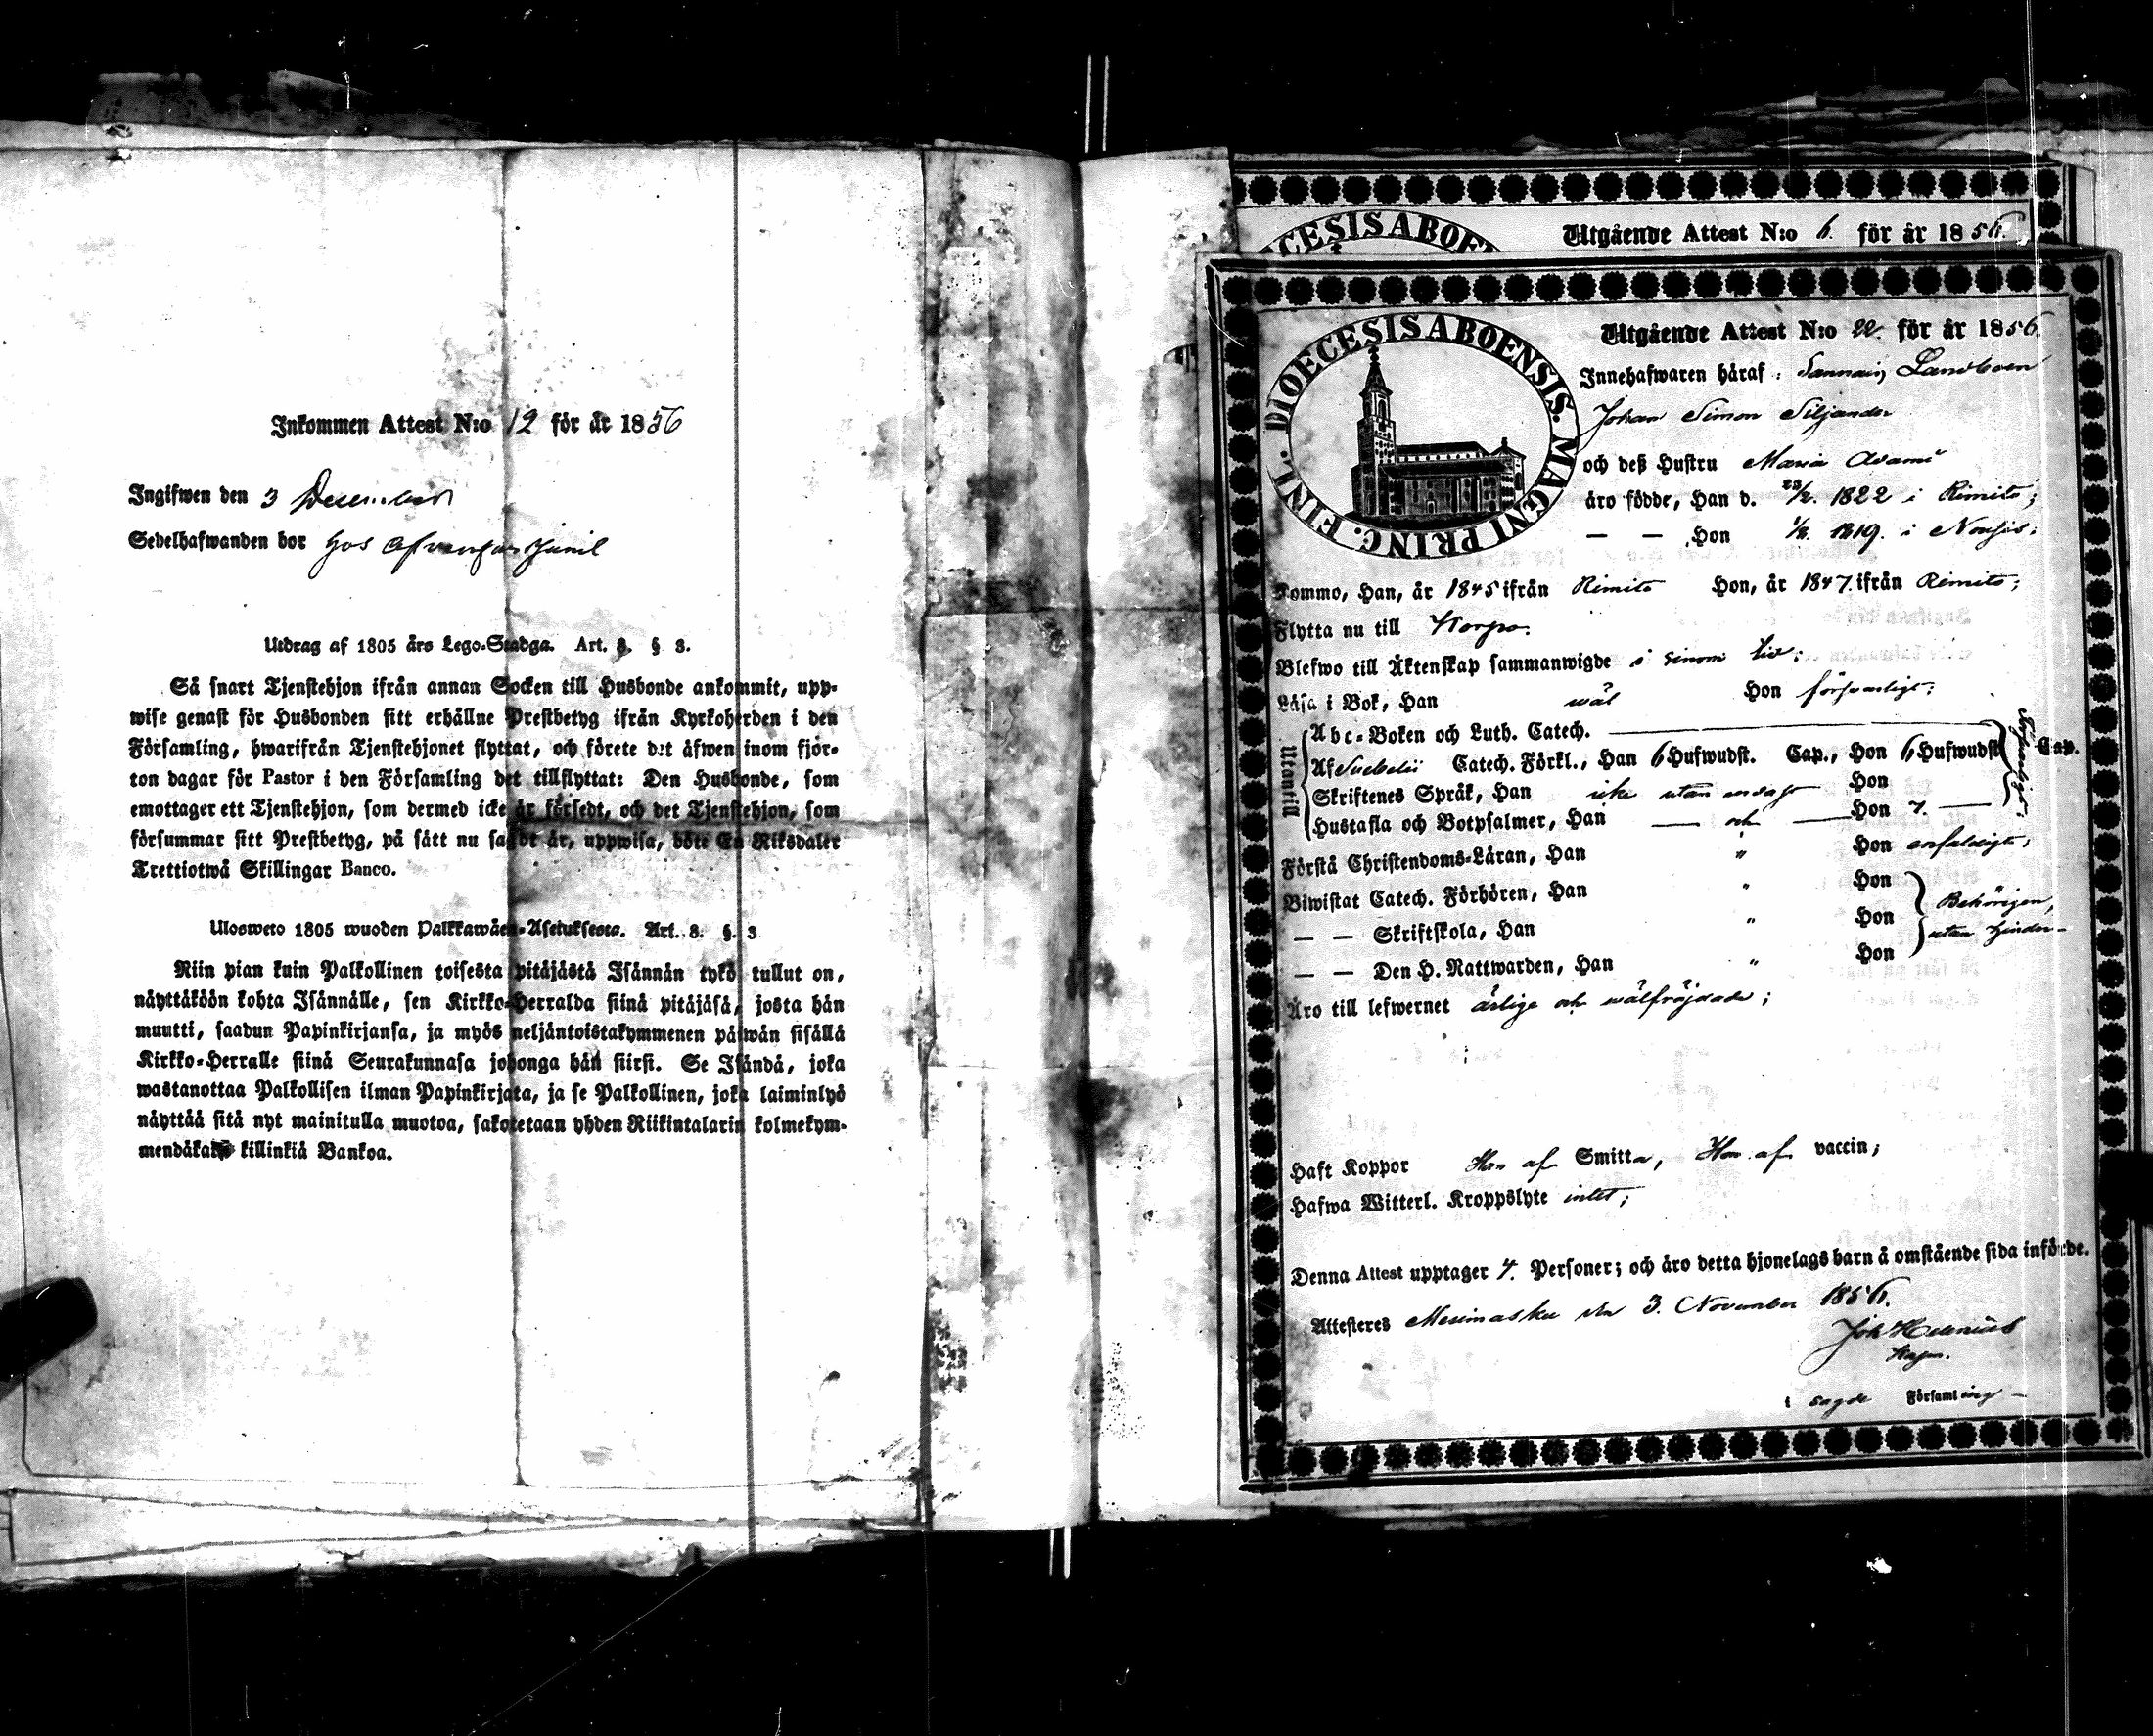 Inkommen Attest N:o 12 för år 1856
Ingifwen den 3 December
Sedelhafwanden bor hos
Utdrag af 1805 års Lego-Stadga. Art. 8. § 3.
Så snart Tjenstehjon ifrån annan Socken till Husbonde ankommit, upp-
wise genast för Husbonden sitt erhållne Prestbetyg ifrån Kyrkoherden i den
Församling, hwarifrån Tjenstehjonet flyttat, och förete det äfwen inom fjor-
ton dagar för Pastor i den Församling det tillflyttat: Den Husbonde, som
emottager ett Tjenstehjon, som dermed icke är försedt, och det Tjenstehjon, som
försummar sitt Prestbetyg, på sätt nu sagdt är, uppwisa, böte En Riksdaler
Trettiotwå Skillingar Banco.
Ulosweto 1805 wuoden Palkkawäen-Asetuksesta. Art. 8. §. 3
Niin pian kuin Palkollinen toisesta pitäjästä Isännän tykö tullut on,
näyttäköön kohta Isännälle, sen Kirkko-Herralda siinä pitäjäsä, josta hän
muutti, saadun Papinkirjansa, ja myös neljäntoistakymmenen päiwän sisällä
Kirkko-Herralle siinä Seurakunnasa johonga hän siirsi. Se Isändä, joka
wastanottaa Palkollisen ilman Papinkirjata, ja se Palkollinen, joka laiminlyö
näyttää sitä nyt mainitulla muotoa, sakotetaan yhden Riikintalarin kolmekym-
mendäkaksi killinkiä Bankoa.
Utgående Attest N:o 6. för år 1856.
DIOECESIS ABOENSIS. MAGNI PRINC. FINL.
Utgående Attest N:o 22. för år 1856
Innehafwaren häraf: Landboen
Johan Simon Siljander
och deß Hustru Maria Adamsd
äro födde, Han d. 23/2. 1822 i Rimito;
— — Hon 1/2. 1819. i Nousis;
Kommo, Han, år 1845 ifrån Rimito Hon, år 1847. ifrån Rimito;
Flytta nu till Korpo.
Blefwo till Äktenskap sammanwigde i sinom tid;
Läsa i Bok, Han wäl Hon försvarligt;
Utantill
Abc-Boken och Luth. Catech.
Af Svebelii Catech. Förkl., Han 6 Hufwudst. Cap., Hon 6 Hufwudst. Cap.
Försvarligt
Skriftenes Språk, Han icke utan andagt Hon
Hustafla och Botpsalmer, Han — och — Hon 7. —
Förstå Christendoms-Läran, Han " Hon enfaldigt;
Biwistat Catech. Förhören, Han " Hon
Behörigen,
— — Skriftskola, Han " Hon
utan hinder
— — Den H. Nattwarden, Han " Hon
Äro till lefwernet ärlige och wälfrejdade;
Haft Koppor Han af Smitta, Hon af vaccin;
Hafwa Witterl. Kroppslyte intet;
Denna Attest upptager 4. Personer; och äro detta hjonelags barn å omstående sida införde.
Attesteres Merimasku den 3. November 1856.
Joh Helenius
Kapn.
i sagde Församling